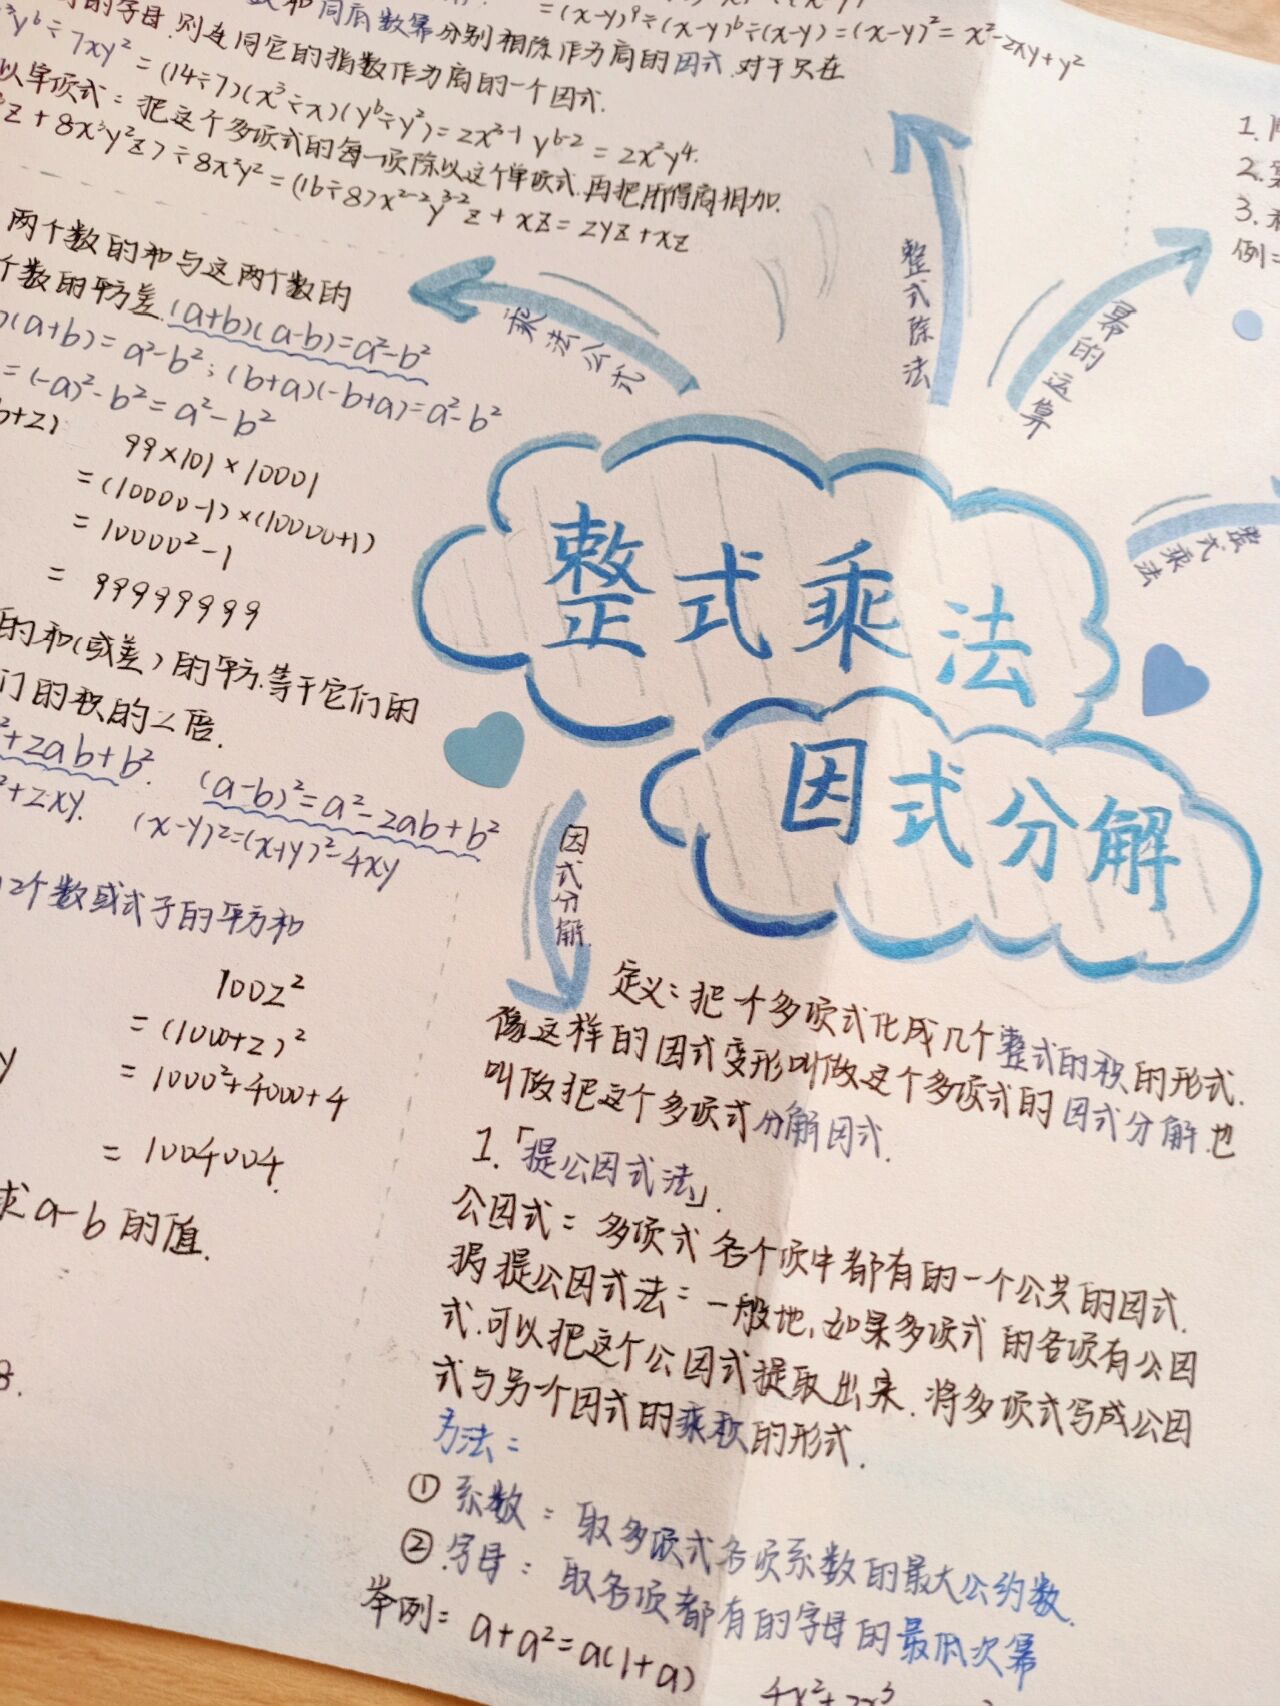 =(x-y)⁹÷(x-y)⁶÷(x-y)=(x-y)²=x²-2xy+y²
和同底数幂分别相除作为商的因式.对于只在
的字母.则连同它的指数作为商的一个因式.
y⁶÷7xy²=(14÷7)(x³÷x)(y⁶÷y²)=2x³⁻¹y⁶⁻²=2x²y⁴.
以单项式:把这个多项式的每一项除以这个单项式.再把所得商相加.
z+8x³y²z)÷8x²y²=(16÷8)x²⁻²y³⁻²z+xz=2yz+xz
两个数的和与这两个数的
个数的平方差.(a+b)(a-b)=a²-b²
)(a+b)=a²-b²;(b+a)(-b+a)=a²-b²
=(-a)²-b²=a²-b²
b+2)
99×101×10001
=(10000-1)×(10000+1)
=10000²-1
=99999999
的和(或差)的平方.等于它们的
们的积的2倍.
²+2ab+b². (a-b)²=a²-2ab+b²
²+2xy. (x-y)²=(x+y)²-4xy
2个数或式子的平方和
1002²
=(1000+2)²
=1000²+4000+4
=1004004.
y
求a-b的值.
3.
乘法公式
整式除法
幂的运算
整式乘法
1.
2.
3.
例:
整式乘法
因式分解
因式分解
定义:把个多项式化成几个整式的积的形式.
像这样的因式变形叫做这个多项式的因式分解.也
叫做把这个多项式分解因式.
1.「提公因式法」.
公因式:多项式各个项中都有的一个公共的因式.
提公因式法:一般地,如果多项式的各项有公因
式.可以把这个公因式提取出来.将多项式写成公因
式与另个因式的乘积的形式.
方法:
①系数:取多项式各项系数的最大公约数.
②字母:取各项都有的字母的最低次幂
举例:a+a²=a(1+a)
4x²+2x³